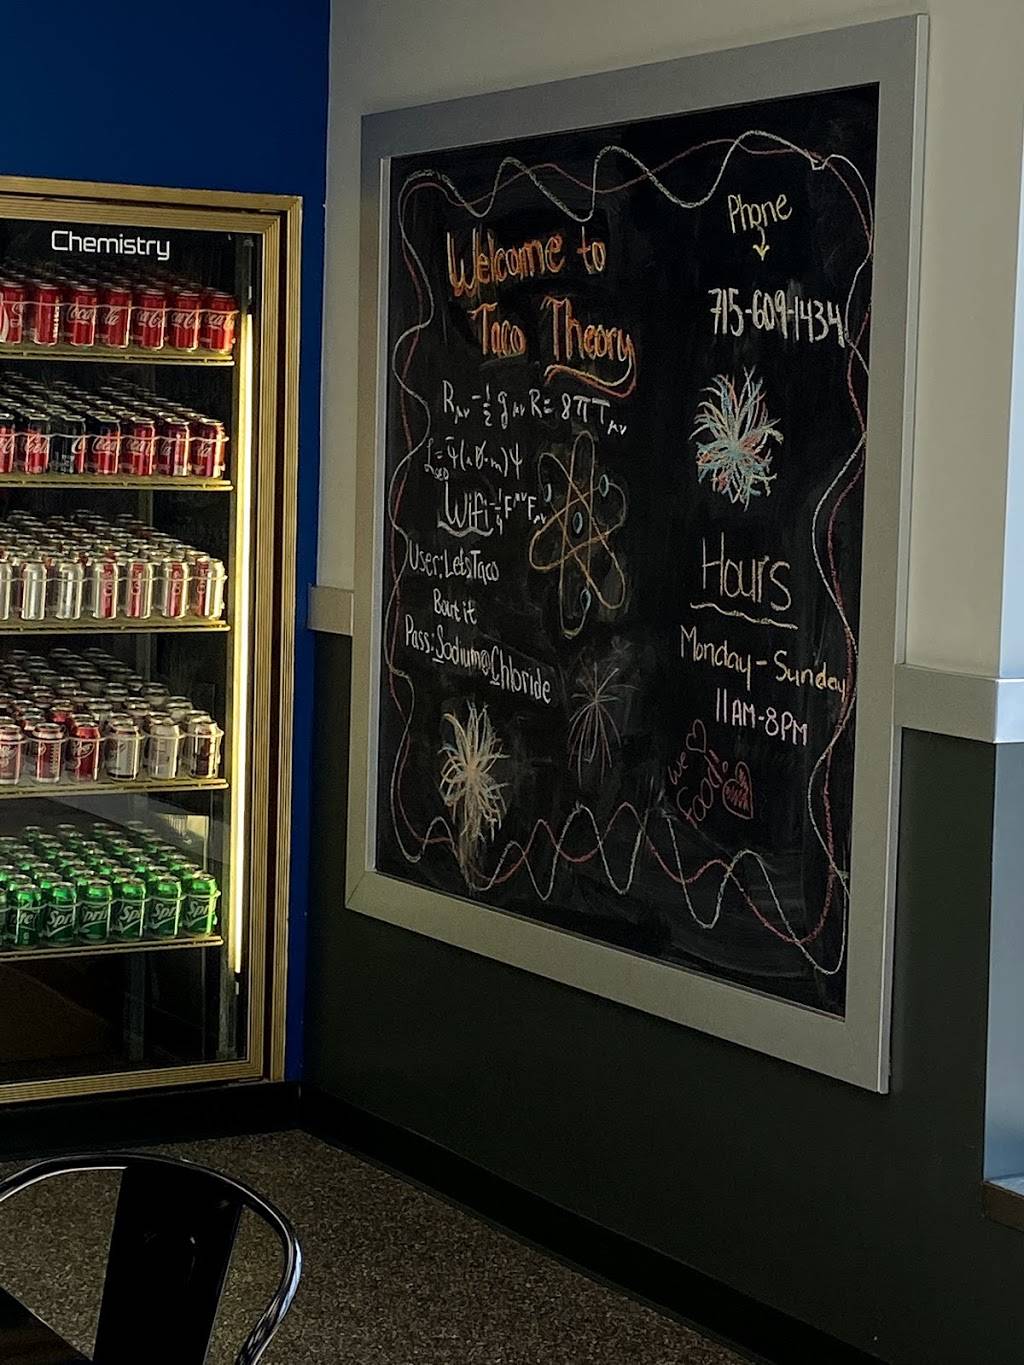 Chemistry
Welcome to
Taco Theory
Rμν-½gμνR=8πTμν
Wifi
-¼FμνFμν
User:LetsTaco
Bout it
Pass:Sodium@Chloride
Phone
715-609-1434
Hours
Monday-Sunday
11AM-8PM
We ♡
Food!
Coca-Cola
Sprite